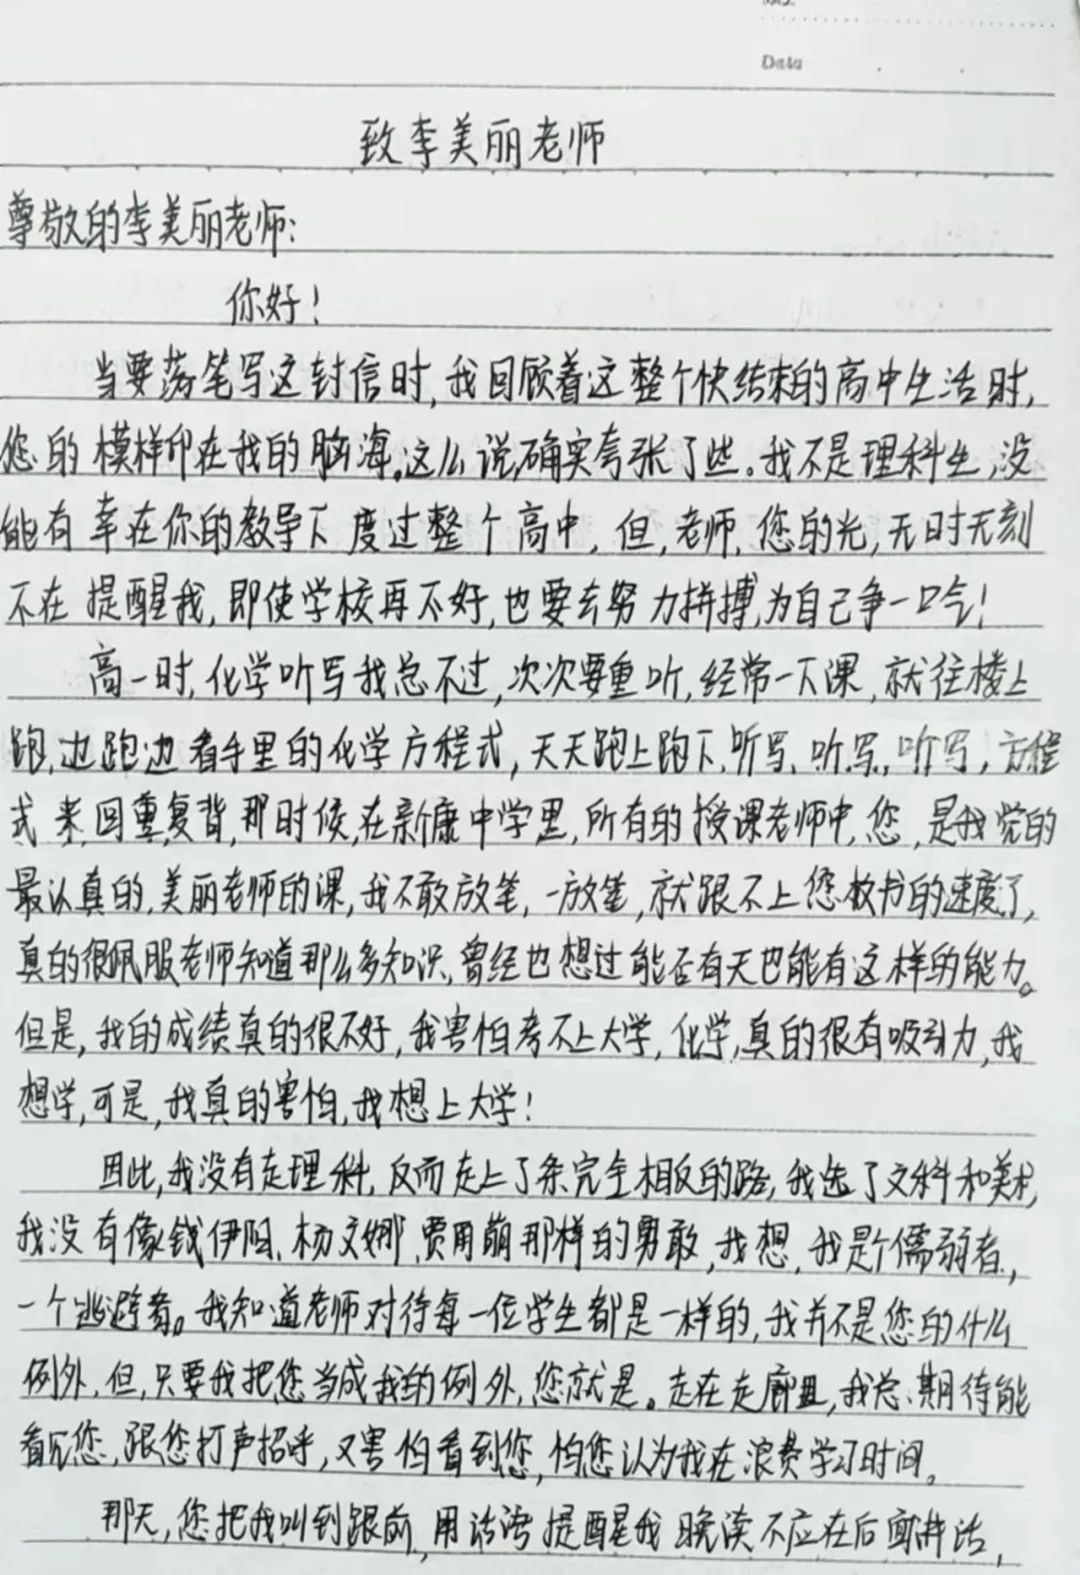 Data
致李美丽老师
尊敬的李美丽老师:
你好!
当要落笔写这封信时,我回顾着这整个快结束的高中生活时,
您的模样印在我的脑海。这么说确实夸张了些。我不是理科生,没
能有幸在你的教导下度过整个高中,但,老师,您的光,无时无刻
不在提醒我,即使学校再不好,也要去努力拼搏,为自己争一口气!
高一时,化学听写我总不过,次次要重听,经常一下课,就往楼上
跑,边跑边看手里的化学方程式,天天跑上跑下,听写,听写,听写,方程
式来回重复背,那时候,在新康中学里,所有的授课老师中,您,是我觉的
最认真的,美丽老师的课,我不敢放笔,一放笔,就跟不上您教书的速度了,
真的很佩服老师知道那么多知识,曾经也想过能否有天也能有这样的能力。
但是,我的成绩真的很不好,我害怕考不上大学,化学,真的很有吸引力,我
想学,可是,我真的害怕,我想上大学!
因此,我没有走理科,反而走上了条完全相反的路,我选了文科和美术,
我没有像钱伊阳,杨文娜,费用萌那样的勇敢,我想,我是个儒弱者,
一个逃避者。我知道老师对待每一位学生都是一样的,我并不是您的什么
例外,但,只要我把您当成我的例外,您就是。走在走廊里,我总期待能
看见您,跟您打声招呼,又害怕看到您,怕您认为我在浪费学习时间。
那天,您把我叫到跟前,用话语提醒我晚读不应在后面讲话,